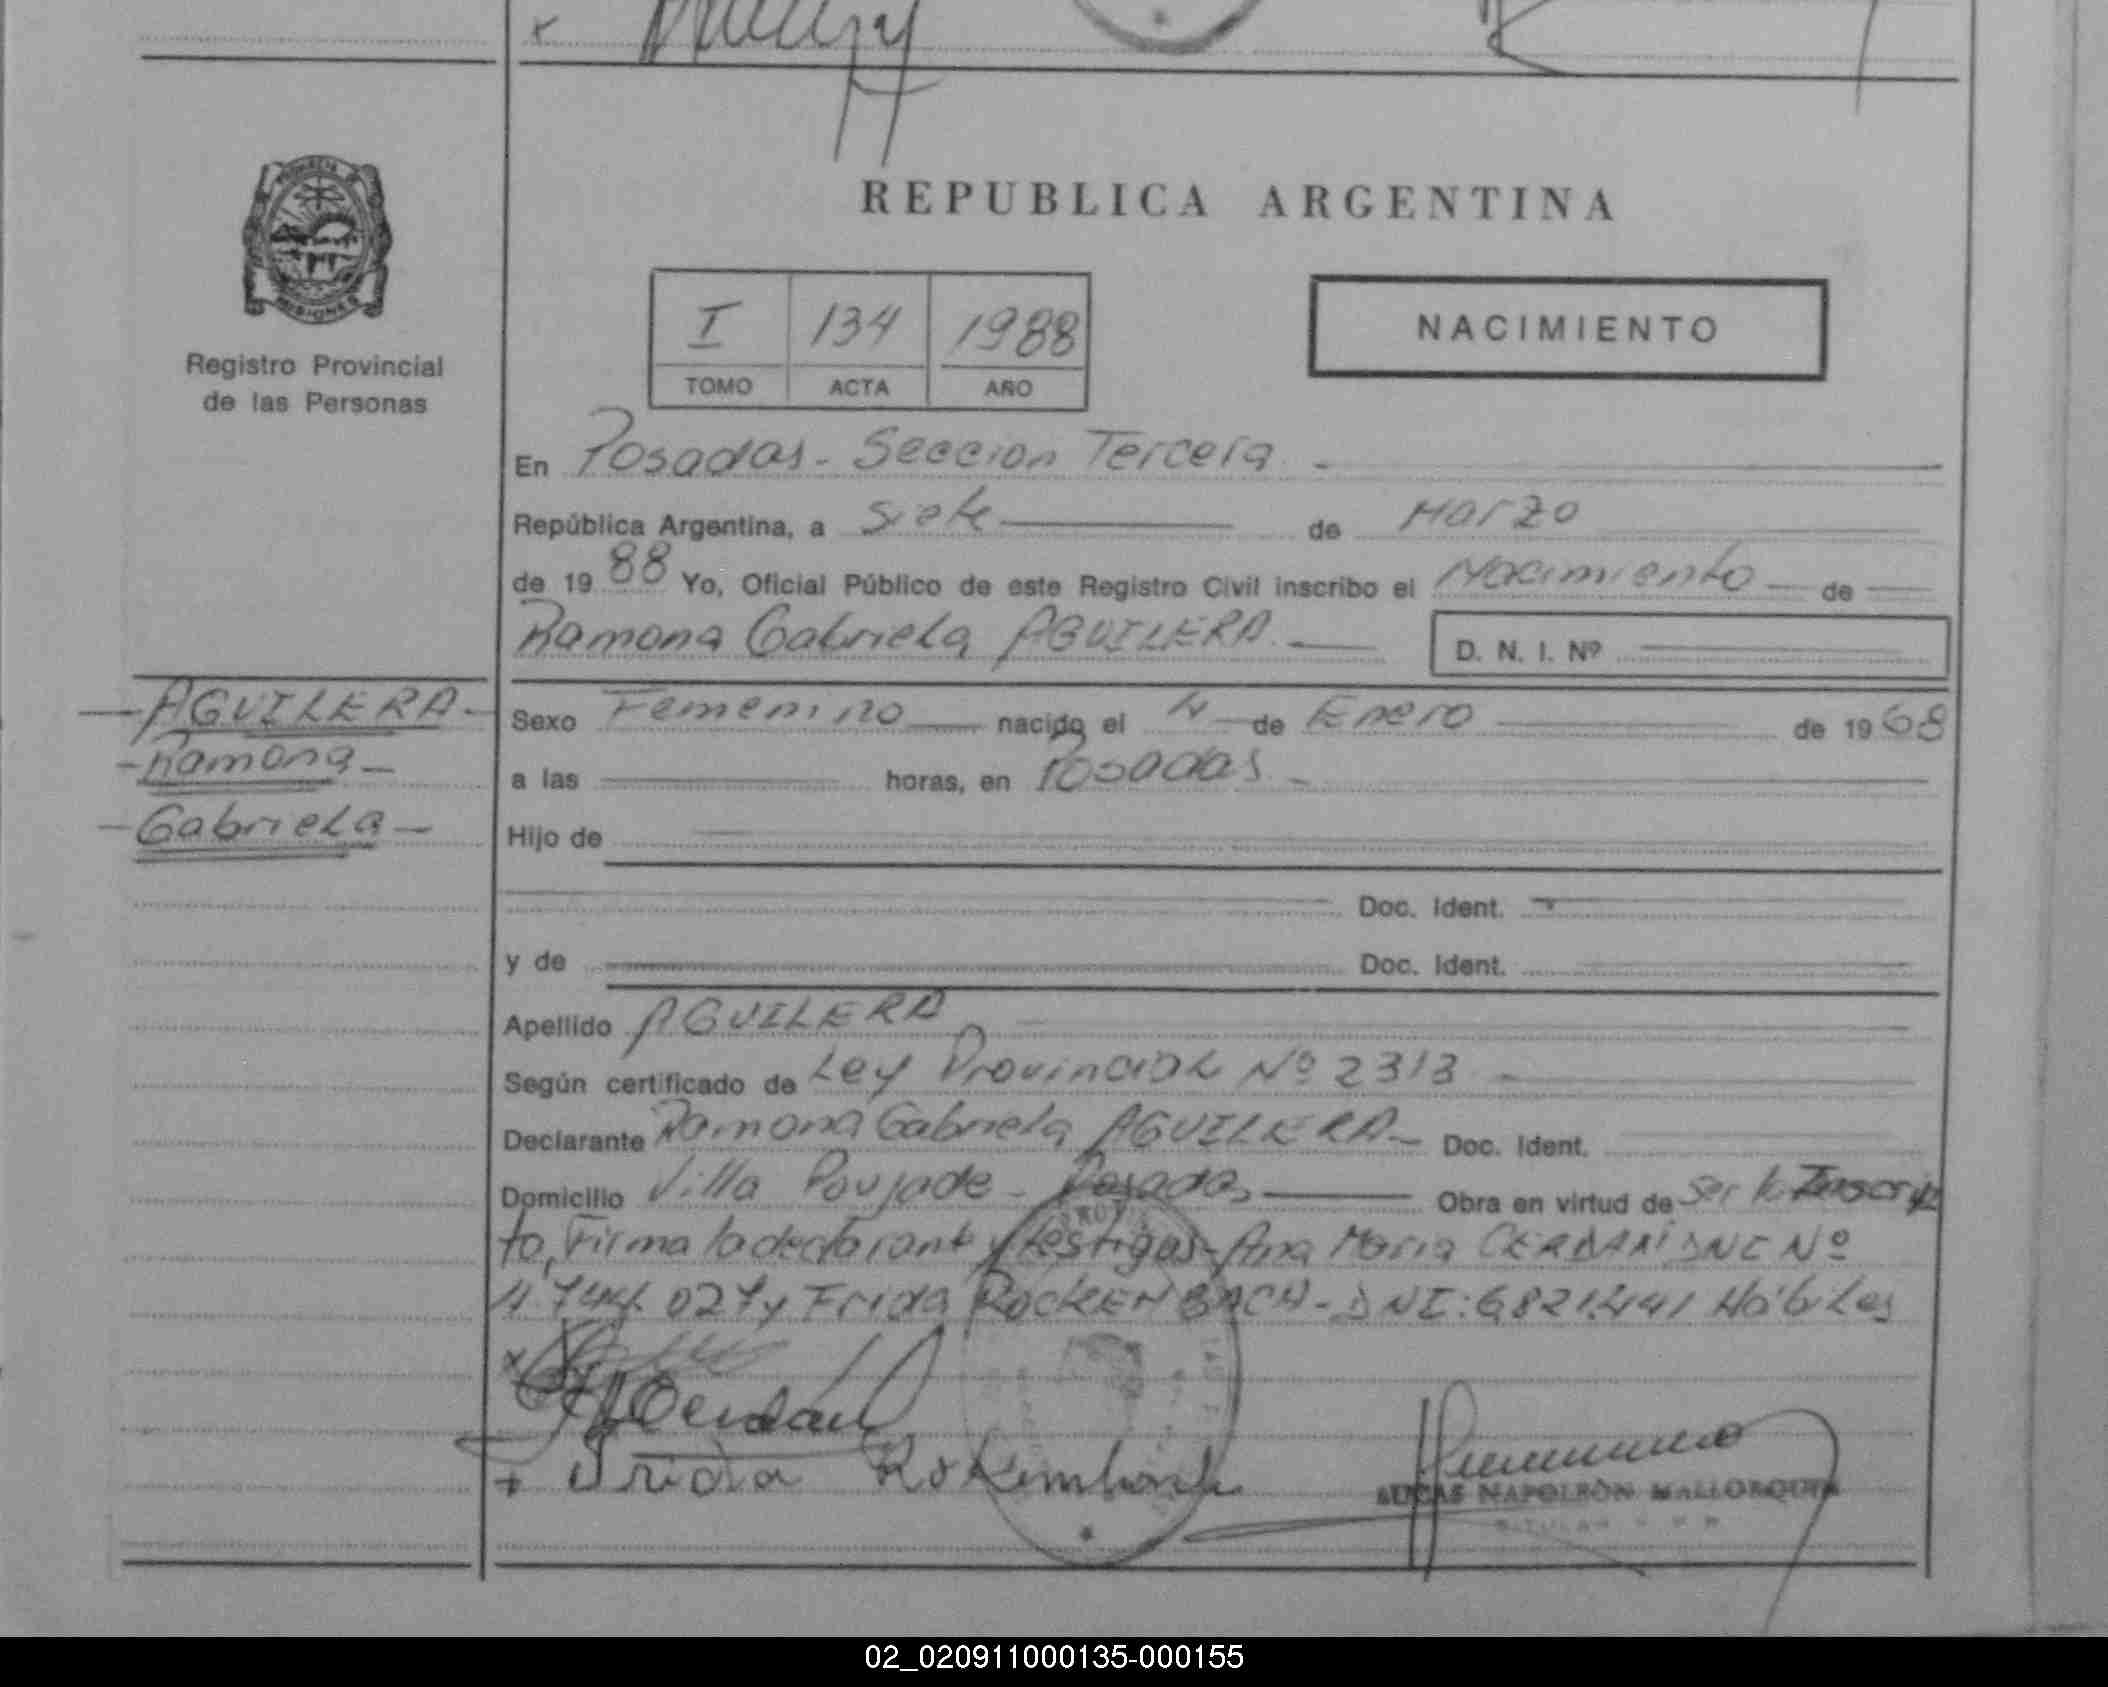 REPUBLICA ARGENTINA
PROVINCIA DE
MISIONES
Registro Provincial
de las Personas
I 134 1988
TOMO ACTA AÑO
NACIMIENTO
En Posadas - Seccion Tercera
República Argentina, a Siete de Marzo
de 1988 Yo, Oficial Público de este Registro Civil inscribo el Nacimiento de
Ramona Gabriela AGUILERA D. N. I. Nº
AGUILERA
Ramona
Gabriela
Sexo Femenino nacido el 4 de Enero de 1968
a las horas, en Posadas
Hijo de
Doc. Ident.
y de Doc. Ident.
Apellido AGUILERA
Según certificado de Ley Provincial Nº 2313
Declarante Ramona Gabriela AGUILERA Doc. Ident.
Domicilio Villa Poujade - Posadas Obra en virtud de Ser la Inscrip
to, Firma la declarante y testigas - Ana Maria CERDAN DNI Nº
11.744.027 y Frida ROCKENBACH - DNI: 6821.441 Hábiles
Frida
LUCAS NAPOLEON MALLORQUIN
TITULAR
02_020911000135-000155